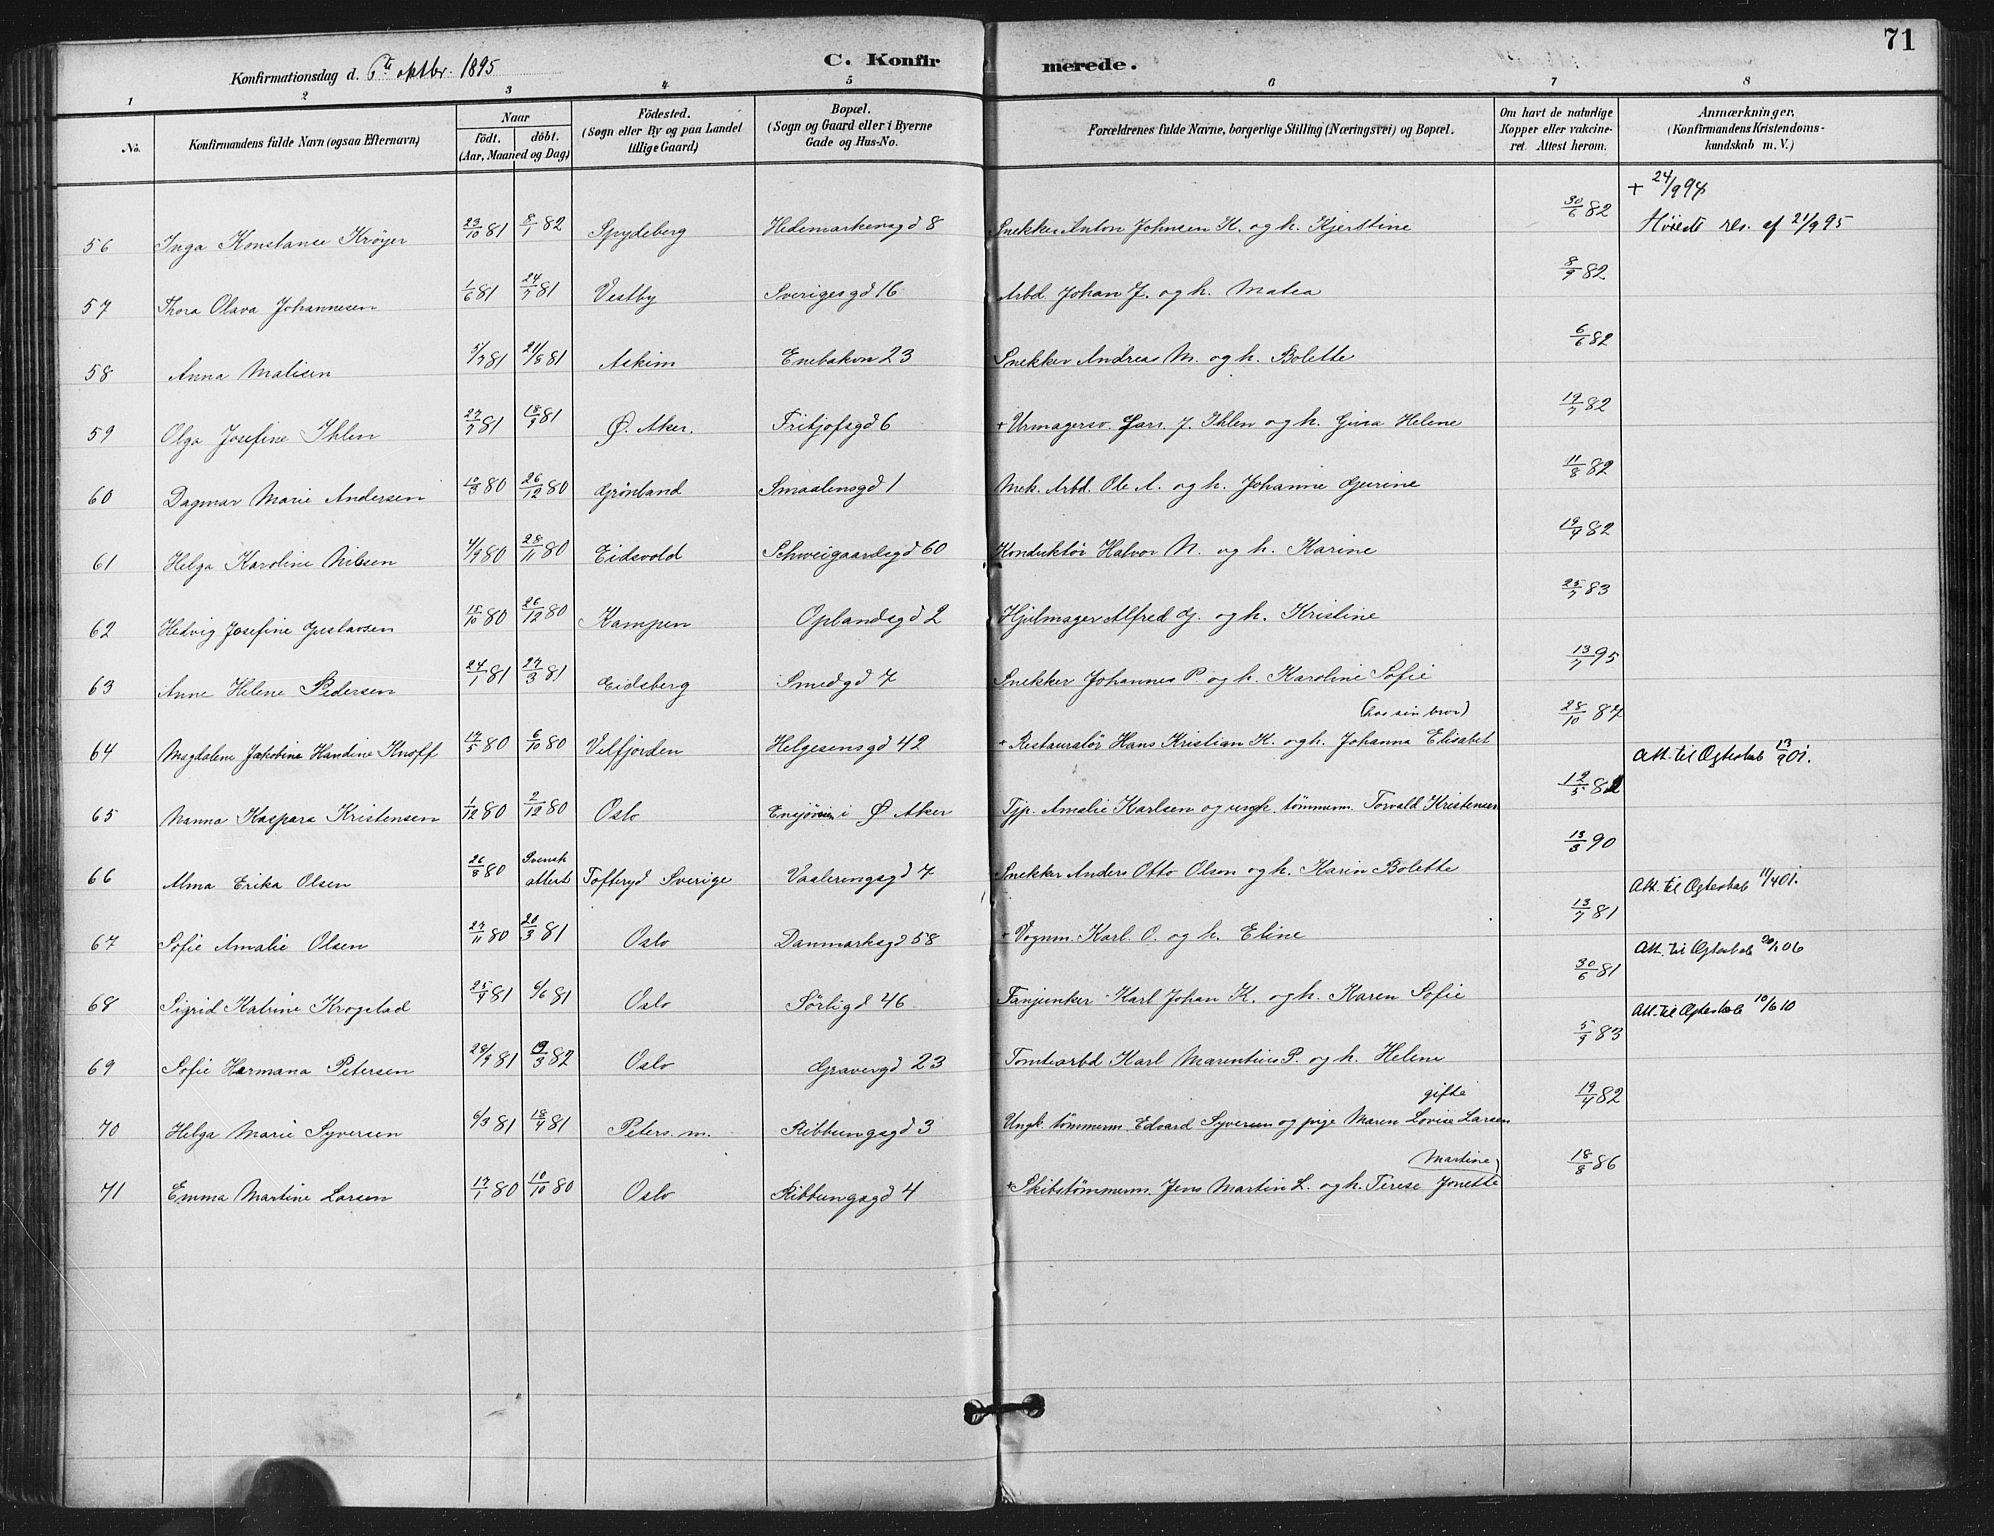 71
Konfirmationsdag d. 6te oktbr. 1895
C. Konfirmerede.
1 2 3 4 5 6 7 8
No. Konfirmandens fulde Navn (ogsaa Efternavn) Naar født. døbt. (Aar, Maaned og Dag) Fødested. (Sogn eller By og paa Landet tillige Gaard) Bopæl. (Sogn og Gaard eller i Byerne Gade og Hus-No. Forældrenes fulde Navne, borgerlige Stilling (Næringsvei) og Bopæl. Om havt de naturlige Kopper eller vakcineret. Attest herom. Anmærkninger. (Konfirmandens Kristendomskundskab m. V.)
+ 24/9 94
56 Inga Konstance Krøyer 23/10 81 8/1 82 Spydeberg Hedemarkensgd 8 Snekker Anton Johnsen K. og h. Kjerstine 30/6 82 res. af 21/9 95
57 Thora Olava Johannesen 1/6 81 24/7 81 Vestby Sverigesgd 16 Arbd. Johan J. og h. Matea 8/9 82
58 Anna Matisen 5/7 81 21/8 81 Askim Enebakvn 23 Snekker Andreas M. og h. Bolette 6/6 82
59 Olga Josefine Ihlen 27/7 81 18/9 81 Ø. Aker. Fritjofsgd 6 + Urmagersv. Lars J. Ihlen og h. Gina Helene 19/7 82
60 Dagmar Marie Andersen 80 26/12 80 Grønland Smaalensgd 1 Mek. Arbd. Ole A. og h. Johanne Gurine 11/8 82
61 Helga Karoline Nilsen 4/9 80 28/11 80 Eidsvold Schweigaardsgd 60 Konduktør Halvor N. og h. Karine 19/4 82
62 Hedvig Josefine Gustavsen 15/10 80 26/12 80 Kampen Oplandsgd 2 Hjulmager Alfred G. og h. Kristine 25/7 83
63 Anne Helene Pedersen 24/1 81 27/3 81 Eidsberg Smedgd 7 Snekker Johannes P og h. Karoline Sofie 13/7 95
(hos sin bror)
64 Magdalene Jakobine Handine Knoff 17/5 80 6/10 80 Velfjorden Helgesensgd 42 + Restauratør Hans Kristian K. og h. Johanna Elisabet 28/10 87
Att. til Ægteskab 13/9 01.
65 Nanna Kaspara Kristensen 1/12 80 2/12 80 Oslo Ensjøveien i Ø Aker Tjp. Amalie Karlsen og ungk. tømmerm. Torvald Kristensen 12/5 82
66 Alma Erika Olsen 26/8 80 Svensk attest Tofteryd Sverige Vaalerengsgd 7 Snekker Anders Otto Olson og h. Karin Bolette 13/8 90
Att. til Ægteskab 11/4 01.
67 Sofie Amalie Olsen 27/11 80 20/3 81 Oslo Danmarksgd 58 + Vognm. Karl O. og h. Eline 13/7 81
Att. til Ægteskab 06
68 Sigrid Katrine Krogstad 25/4 81 6/6 81 Oslo Sørligd 46 Fanjunker Karl Johan K. og h. Karen Sofie 30/6 81
Att. til Ægteskab 10/6 10
69 Sofie Hermana Petersen 28/9 81 82 Oslo Gravergd 23 Tomtearbd Karl Marentius P. og h. Helene 5/9 83
gifte
70 Helga Marie Syversen 6/3 81 18/4 81 Peters. m. Ribbungsgd 3 Ungk. tømmerm. Edvard Syversen og pige Maren Lovise Larsen 19/4 82
Martine)
71 Emma Martine Larsen 17/1 80 10/10 80 Oslo Ribbungsgd 4 + Skibstømmerm. Jens Martin L. og h. Terese Jonette 18/8 86